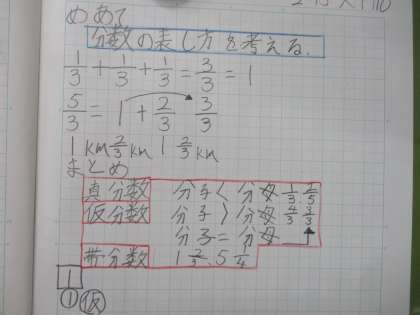 めあて
分数の表し方を考える.
1/3 + 1/3 + 1/3 = 3/3 = 1
5/3 = 1 + 2/3 3/3
1km 2/3km 1 2/3 km
まとめ
真分数 分子 < 分母 1/3. 2/5
仮分数 分子 > 分母 4/3 3/3
分子 = 分母
帯分数 1 2/3. 5 1/4
1
① 仮